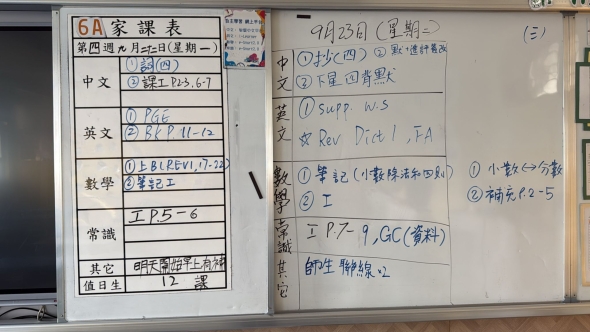 6A 家課表
第四週九月二十二日(星期一)
中文
①詞(四)
②課工P.2-3,6-7
英文
①PGE
②BK P.11-12
數學
①上B(REV1,17-22)
②筆記工
常識
工 P.5-6
其它
明天開始早上有補
值日生
12 課
9月23日(星期二)
中文
①抄(四)
②默+進計簽改
③下星回背默
英文
①Supp. w.s
☆ Rev Dict 1, FA
數學
①筆記(小數除法和四則)
②工
常識
工 P.7-9, GC(資料)
其它
師生聯線
(三)
①小數↔分數
②補充P.2-5